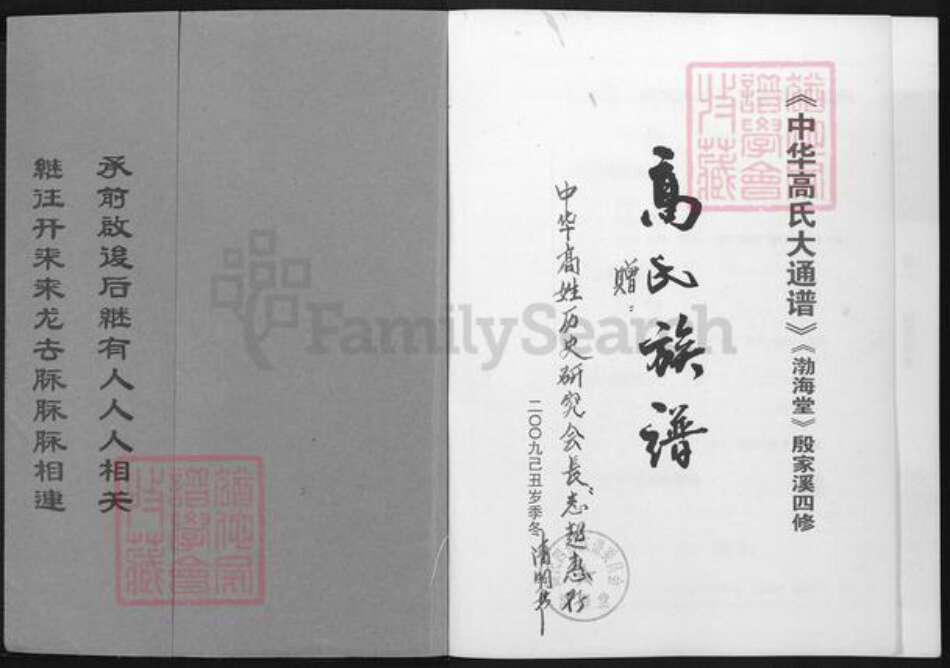 《中华高氏大通谱》《渤海堂》殷家溪四修
高氏族谱
赠：
中华高姓历史研究会会长：志超惠存
二〇〇九己丑岁季冬
清明书
承前啟後后継有人人人相关
継往开来来龙去脉脉脉相連
谱學會
收藏
FamilySearch